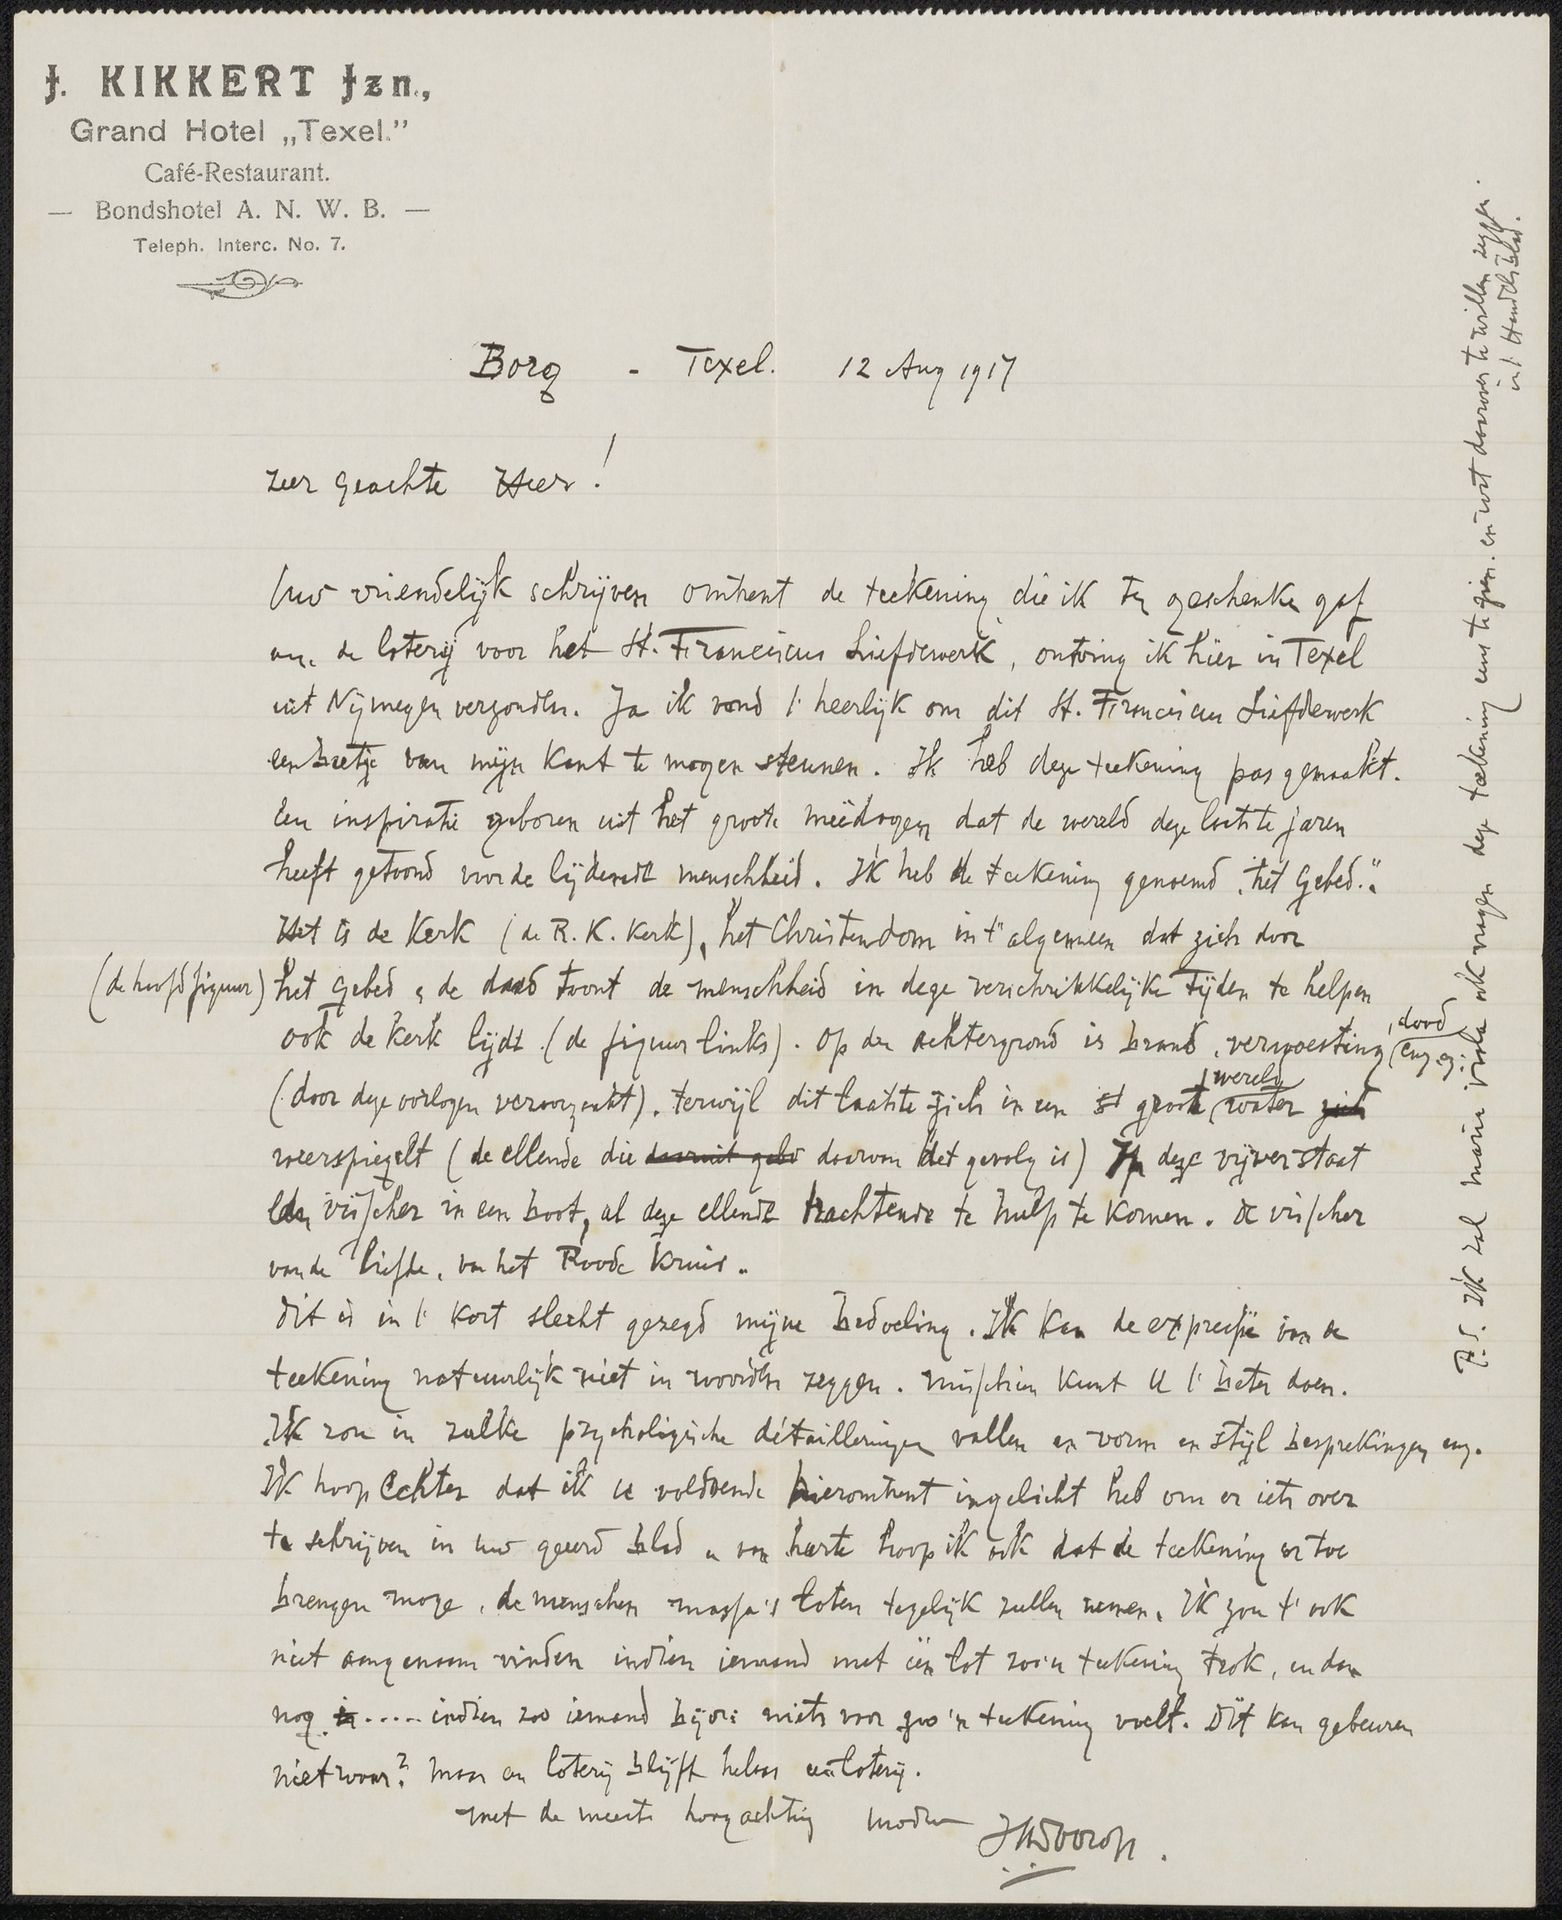 J. KIKKERT Jzn.,
Grand Hotel „Texel.”
Café-Restaurant.
— Bondshotel A. N. W. B. —
Teleph. Interc. No. 7.
Borg - Texel. 12 Aug 1917
zeer geachte Heer!
Uw vriendelijk schrijven omtrent de teekening die ik ten geschenke gaf
de loterij voor het St. Franciscus Liefdewerk, ontving ik hier in Texel
uit Nijmegen verzonden. Ja ik vond 't heerlijk om dit St. Franciscus Liefdewerk
een beetje van mijn kant te mogen steunen. Ik heb deze teekening pas gemaakt.
Een inspiratie geboren uit het groote meêdogen dat de wereld deze laatste jaren
heeft getoond voor de lijdende menschheid. Ik heb de teekening genoemd „het Gebed.”
Het is de Kerk (de R. K. Kerk), het Christendom in 't algemeen dat zich door
(de hoofdfiguur) het gebed & de daad toont de menschheid in deze verschrikkelijke tijden te helpen
ook de Kerk lijdt (de figuur links). Op den achtergrond is brand, verwoesting, dood enz. enz.
(door deze oorlogen veroorzaakt). terwijl dit laatste zich in een st groot wereld water zich
weerspiegelt (de ellende die daaruit gebo daarvan het gevolg is) Op deze vijver staat
een visscher in een boot, al deze ellende trachtende te hulp te komen. De visscher
van de liefde, van het Roode Kruis.
Dit is in 't kort slecht gezegd mijne bedoeling. Ik kan de expressie van de
teekening natuurlijk niet in woorden zeggen. misschien kunt U 't beter doen.
Ik zou in zulke psychologische détailleringen vallen en vorm en stijl besprekingen enz.
Ik hoop echter dat ik u voldoende hieromtrent ingelicht heb om er iets over
te schrijven in uw geëerd blad & van harte hoop ik ook dat de teekening er toe
brengen moge, de menschen massa's loten tegelijk zullen nemen. Ik zou 't ook
niet aangenaam vinden indien iemand met één lot zoo'n teekening trok, en dan
nog in..... indien zoo iemand bijna niets voor zoo'n teekening voelt. Dit kan gebeuren
niet waar? maar een loterij blijft helaas een loterij.
met de meeste hoogachting
JThToorop.
P.S. Ik zal ook vragen deze teekening eens te zien. en wat daarover te willen zeggen.
in 't Handelsblad.